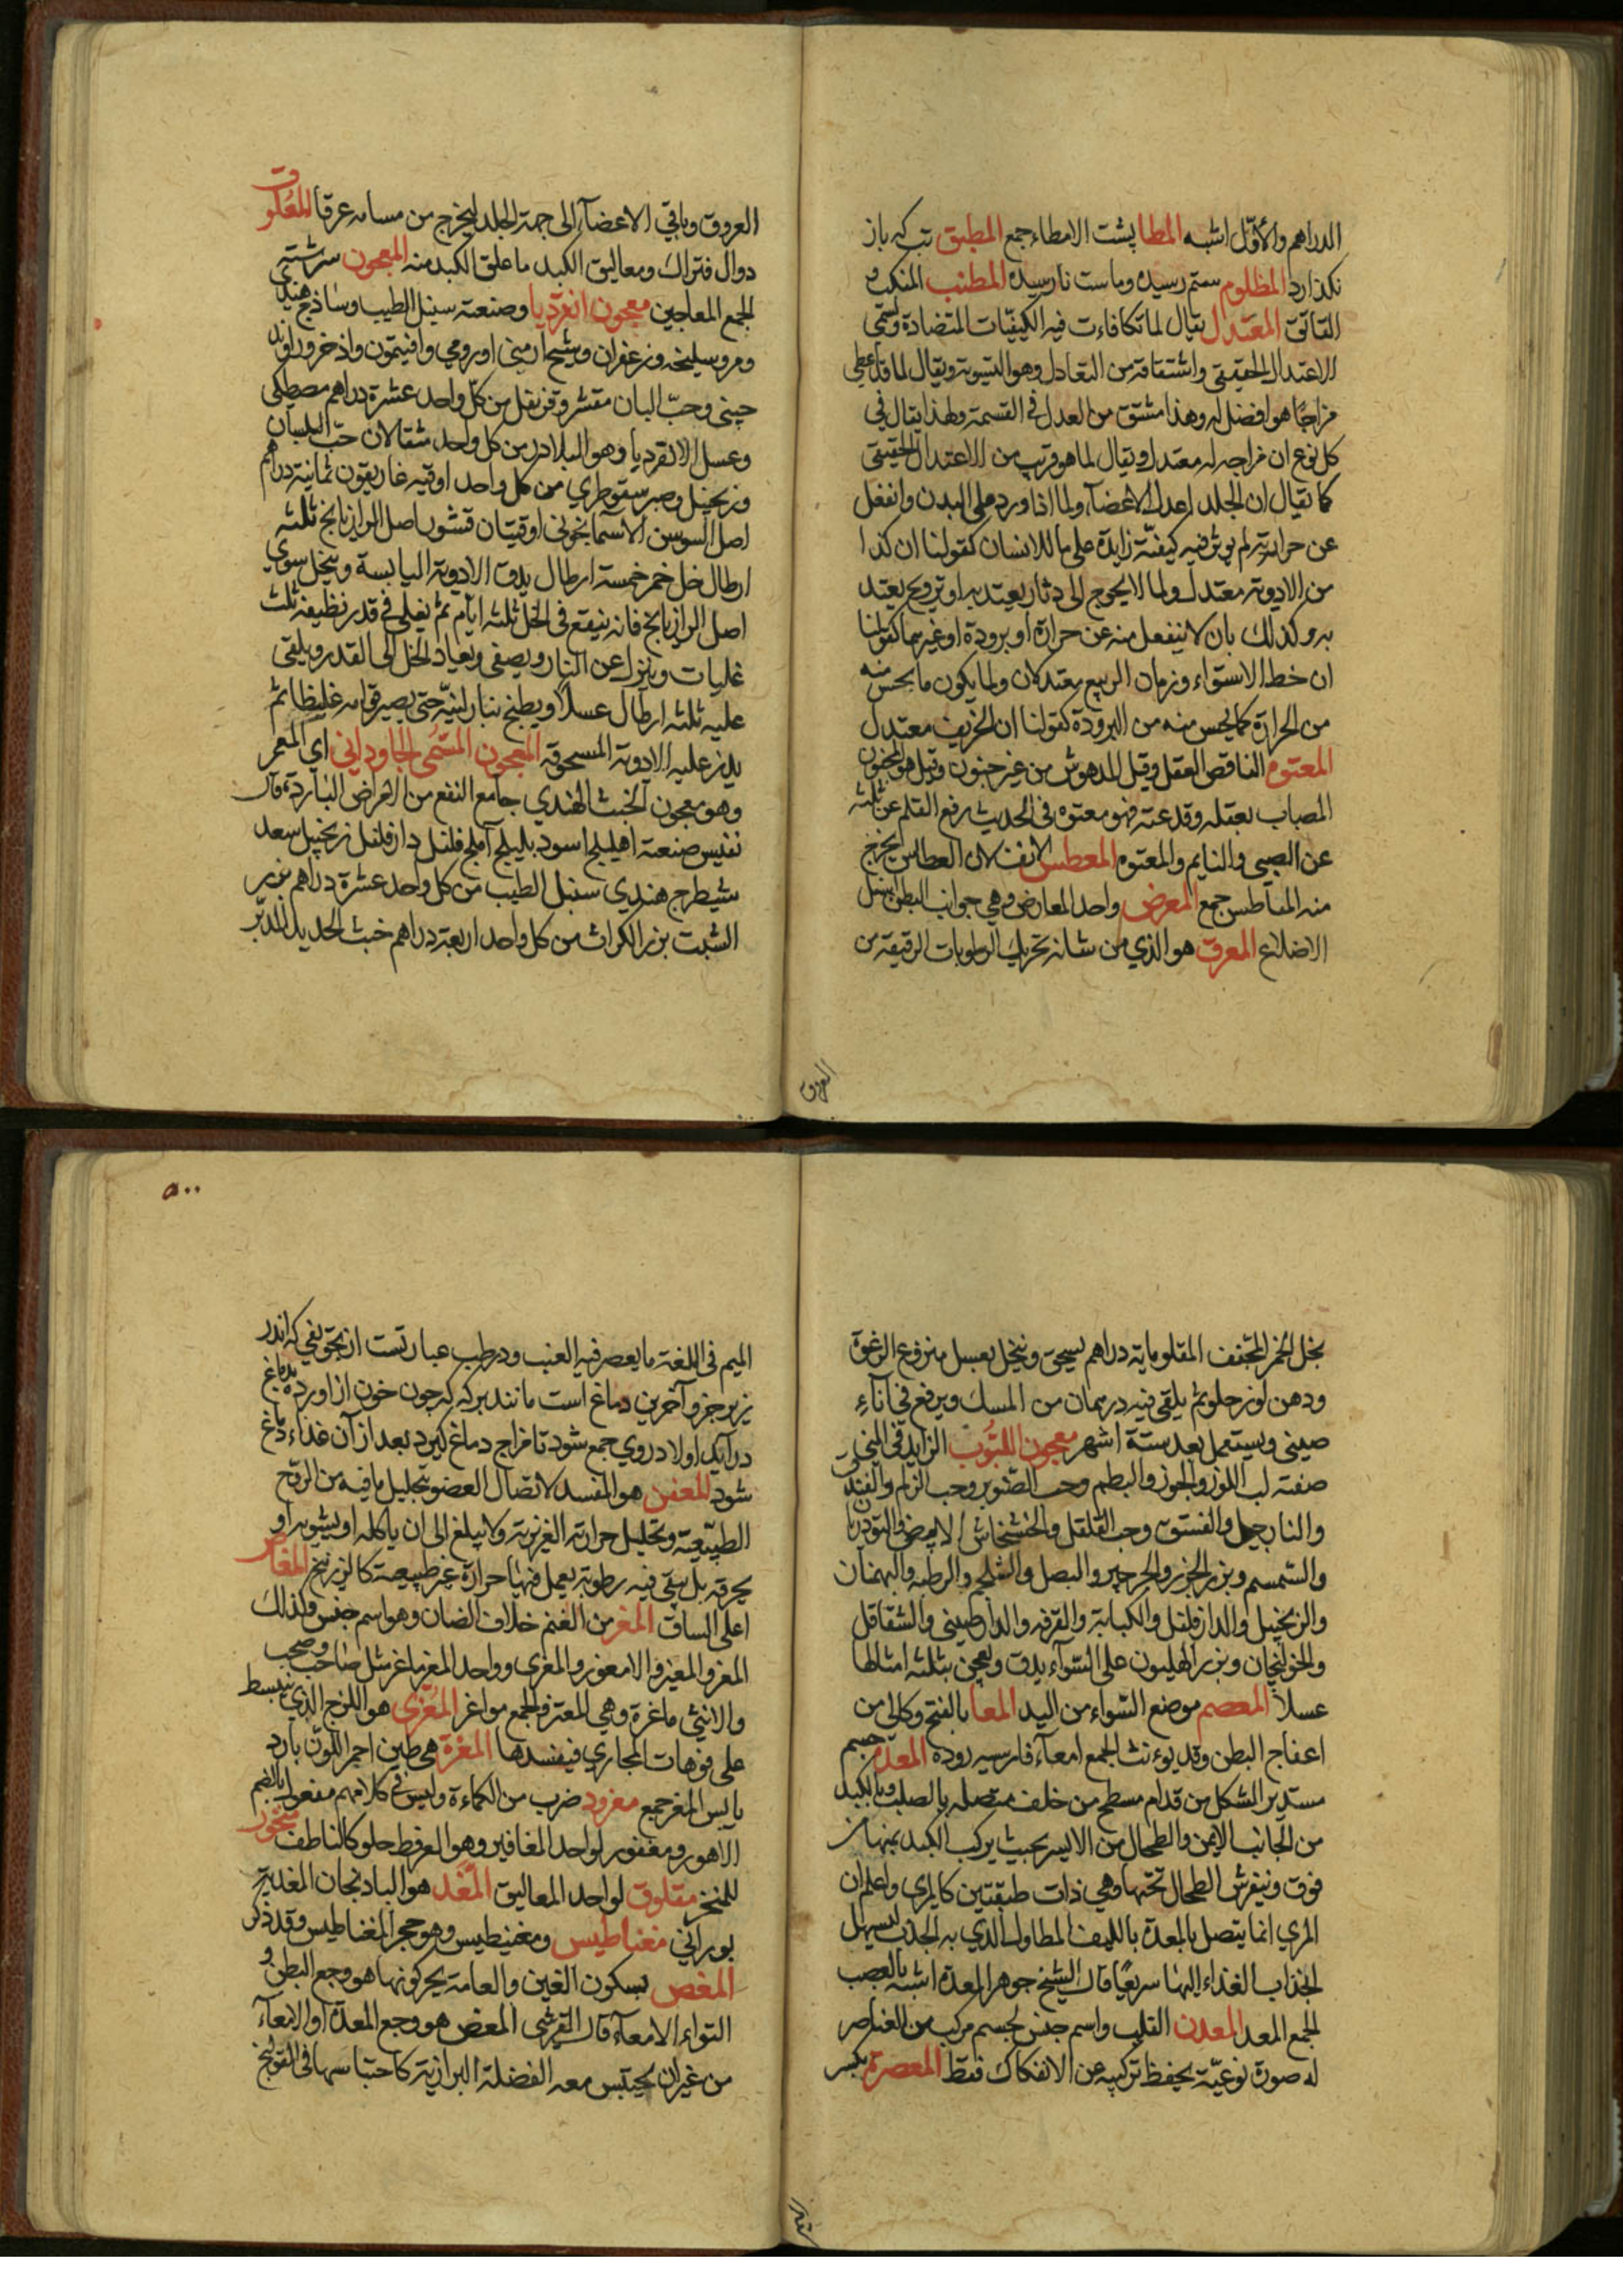 الدراهم والأوّل اشبه المطا پشت الامطاء جمع المطبق تب كه باز
نكذارد المظلوم ستم رسيده وماست نارسيده المطنب المنكب و
القاتق المعتدل يقال لما تكافاءت فيه الكيفيّات المتضادة ويسمّى
الاعتدال الحقيقى واشتقاقه من التعادل وهو التسوية ويقال لما قد اعطي
مزاجًا هو افضل له وهذا مشتق من العدل فى القسمة ولهذا يقال في
كل نوع ان مزاجه له معتدل ويقال لما هو قريب من الاعتدال الحقيقى
كما يقال ان الجلد اعدل الاعضآء ولما اذا ورد على البدن وانفعل
عن حرارته لم يوثر فيه كيفيّة زايدة على ما للانسان كقولنا ان كذا
من الادوية معتدل ولما لا يحوج الى دثار يعتد به او ترويح يعتد
به وكذلك بان لا ينفعل منه عن حرارة او برودة او غيرهما كقولنا
ان خط الاستواء وزمان الربيع معتدلان ولما يكون ما يحس منه
من الحرارة كما يحس منه من البرودة كقولنا ان الخريف معتدل
المعتوم الناقص العقل وقيل المدهوش من غير جنون وقيل هو المجنون
المصاب بعقله وقد عته فهو معتوه فى الحديث رفع القلم عن ثلثه
عن الصبي والنايم والمعتوم المعطس الانف لان العطاس يخرج
منه المعاطس جمع المعرض واحد المعارض وهي جوانب البطن اسفل
الاضلاع المعرق هو الذي من شانه تحريك الرطوبات الرقيقة من
العروق
العروق وباقي الاعضآء إلى جهة الجلد ليخرج من مسامه عرقا المعلوق
دوال فتراك ومعاليق الكبد ما علق الكبد منه المعجون سرشته
الجمع المعاجين معجون انقرديا وصنعته سنبل الطيب وساذج هندي
ومر وسليخه وزعفران وشيح ارمنى او رومي وافتيمون واذخر وراوند
چينى وحبّ البان مقشر وقرنفل من كل واحد عشرة دراهم مصطكى
وعسل الانقرديا وهو البلادر من كل واحد مثقالان حبّ البلسان
وزنجبيل وصبر سقوطري من كل واحد اوقيه غاريقون ثمانية دراهم
اصل السوسن الاسمانجونى اوقيتان قشور اصل الرازيانج ثلثه
ارطال خل خمر خمسة ارطال يدق الادوية اليابسة وينخل سوى
اصل الرازيانج فانه ينقع فى الخل ثلثه ايّام ثم يغلى فى قدر نظيفه ثلث
غليات وينزل عن النار ويصفى ويعاد الخل الى القدر ويلقى
عليه ثلثه ارطال عسلًا ويطبخ بنار لنيّه حتى يصير قوامه غليظا ثم
يذر عليه الادوية المسحوقه المعجون المسمّى الجاودانى اي المعمر
وهو معجون الخبث الهندي جامع النفع من الامراض الباردة قال
نفيس صنعته اهليلج اسود بليلج آملج فلفل دارفلفل زنجبيل سعد
شيطرج هندي سنبل الطيب من كل واحد عشرة دراهم بزر
الشبت بزر الكراث من كل واحد اربعة دراهم خبث الحديد المدبّر
بخل الخمر المجفف المقلو مايه دراهم يسحق وينخل بعسل منزوع الرغوة
ودهن لوز حلو ثم يلقى فيه درهمان من المسك ويرفع فى اناءِ
صينى ويستعمل بعد ستة اشهر معجون اللبّوب الزايد فى المنى
صفته لب اللوز والجوز والبطم وحب الصنوبر وحب الزلم والفندق
والنارجيل والفستق وحب القلقل والخشخاش الابيض والتودريان
والسّمسم وبزر الجزر والجرجير والبصل والشلجم والرطبه والبهمنان
والزنجبيل والدارفلفل والكبابة والقرفه والدارصينى والشقاقل
والخولنجان وبزر الهليون على السّوآء يدق ويعجن بثلثه امثالها
عسلا المعصم موضع السّواء من اليد المعا بالفتح وكالى من
اعفاج البطن وقد يوءنث الجمع امعآء فارسيه روده المعدة جسم
مستدير الشكل من قدام مسطح من خلف متصله بالصلب وبالكبد
من الجانب الايمن والطحال من الايسر بحيث يركب الكبد يمينها من
فوق وينفرش الطحال تحتها وهي ذات طبقتين كالمرى واعلم ان
المري انما يتصل بالمعدة بالليف المطاول الذي به الجذب ليسهل
انجذاب الغذاء اليها سريعًا قال الشيخ جوهر المعدة اشبه بالعصب
الجمع المعد المعدن القلب واسم جنس لجسم مركب من العناصر
له صورة نوعيّة يحفظ تركيبه عن الانفكاك فقط المعصرة بكسر
٥٠٠
الميم فى اللغة ما يعصر فيه العنب ودر طب عبارتست از تجويفي كه اندر
زير جزو آخرين دماغ است مانند بركه كه چون خون از اورده بدماغ
درآيد اولا دروي جمع شود تا مزاج دماغ كيرد بعد از آن غذاء دماغ
شود المعفن هو المفسد لاتصال العضو بتحليل ما فيه من الروح
الطبيعية وتحليل حرارته الغريزية ولا يبلغ الى ان ياكله او يشويه او
يحرقه بل يبقى فيه رطوبة يعمل فيها حرارة غير طبيعية كالزرنيخ المغاص
اعلى الساق المغز من الغنم خلاف الضان وهو اسم جنس وكذلك
المعز والمعيز والامعوز والمعزى وواحد المغز ماغز مثل صاحب وصحب
والانثى ماغزة وهي المعزة والجمع مواغز المُغَرّى هو اللزج الذي ينبسط
على فوهات المجاري فيفسدها المغرة هى طين احمر اللون بارد
يابس المغر جمع مغرود ضرب من الكماءة وليس فى كلامهم مفعول بالضم
الا هو ومغفور لواحد المغافير وهو العرفط حلو كالناطف منخور
للمنخر مقلوق لواحد المعاليق المّغد هو البادنجان المغدية
بوراني مغناطيس ومغنيطيس وهو حجر المغناطيس وقد ذكر
المغص بسكون الغين والعامة يحركونها هو وجع البطن و
التواء الامعآء قال القرشى المغص هو وجع المعدة او الامعآء
من غير ان يحتبس معه الفضلة البرازية كاحتباسها فى القولنج